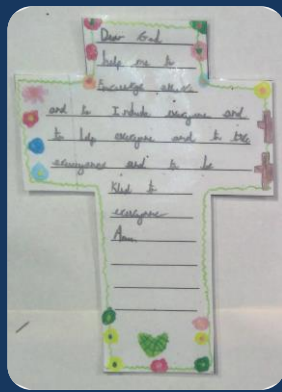 Dear God
help me to
Encourage others
and to Include everyone and
to help everyone and to
everyone and to be
kind to
everyone
Amen